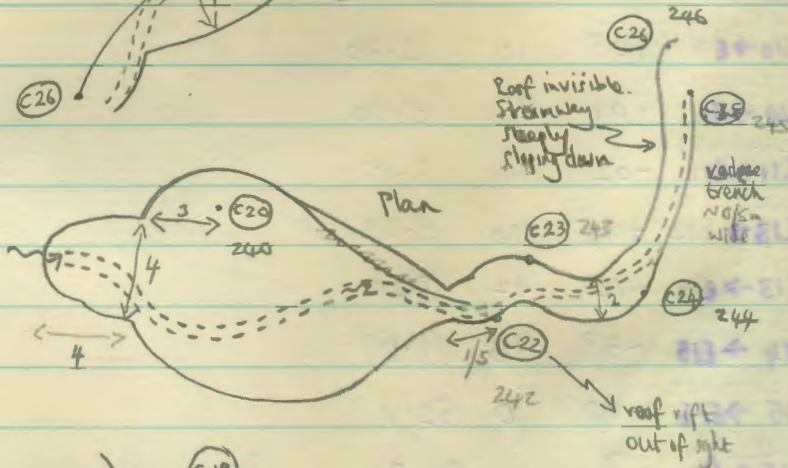 C26
246
C26
Roof invisible.
Streamway
steeply
sloping down
C25
245
vadose
trench
~0/5m
wide
Plan
3
C20
240
4
C23
243
2
C24
244
4
1/5
C22
242
roof rift
out of sight